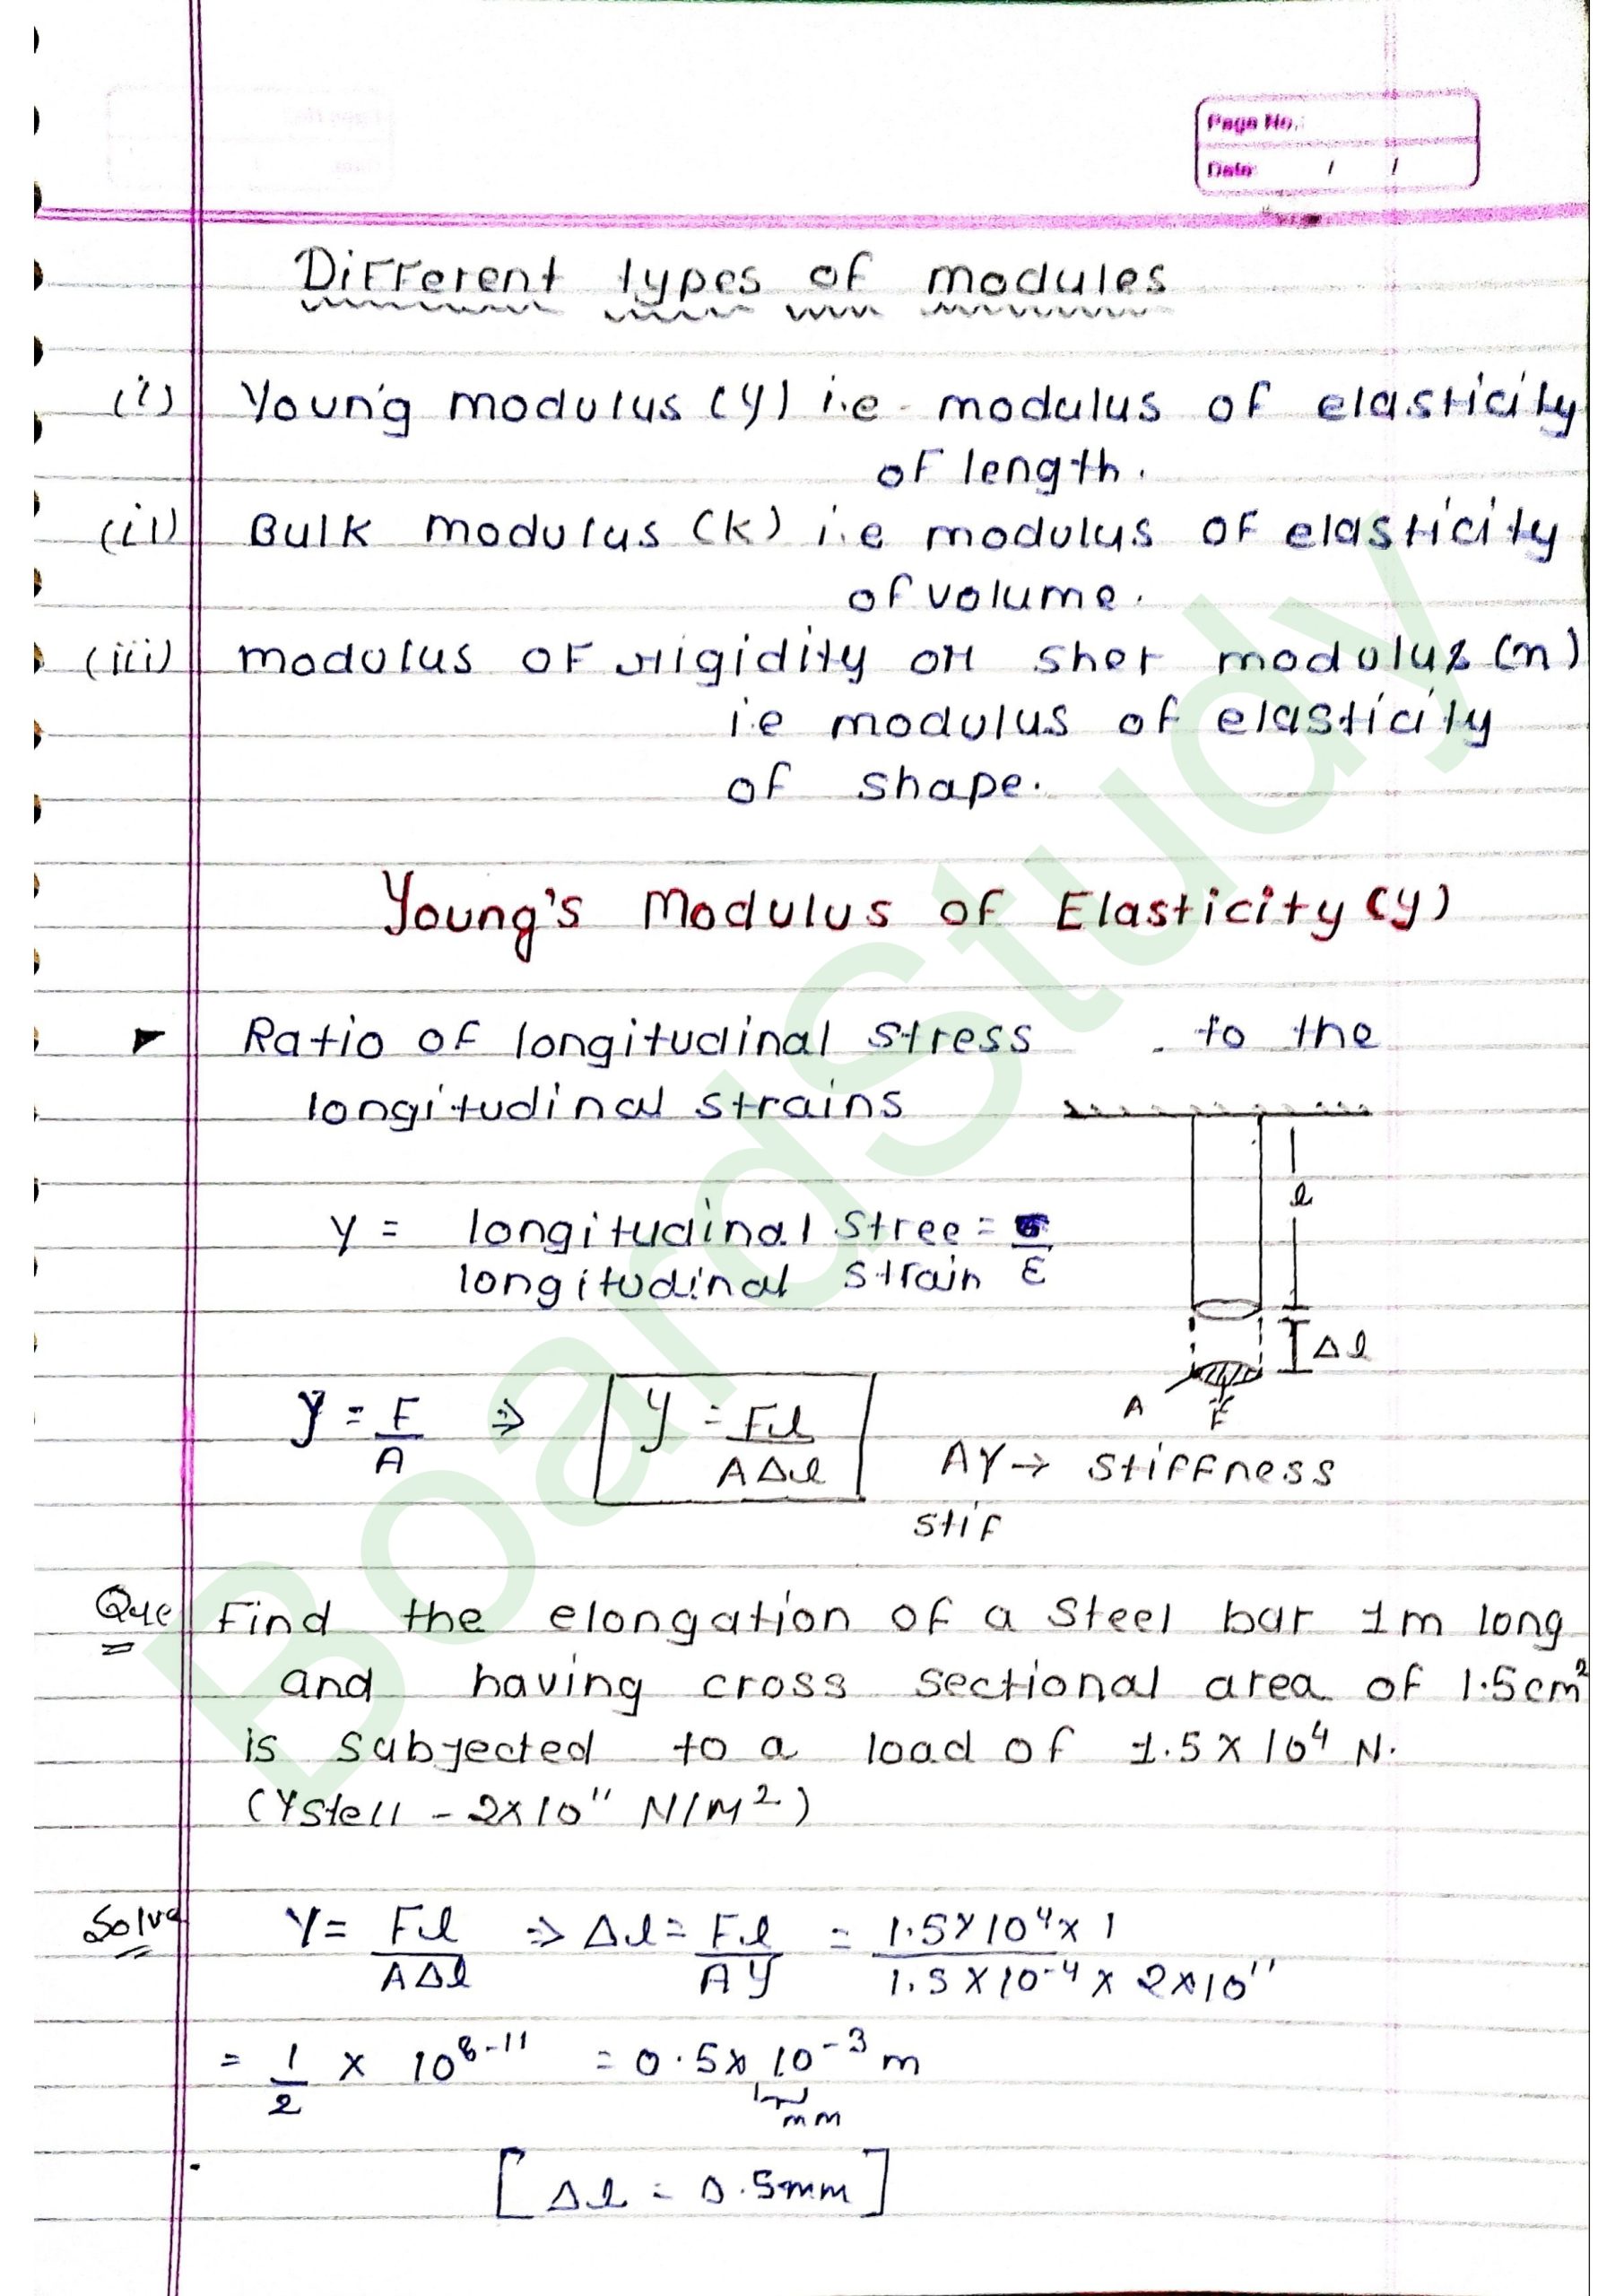 Page No.:
Date / /
Different types of modules
(i) Young modulus (y) i.e. modulus of elasticity
of length.
(ii) Bulk modulus (k) i.e modulus of elasticity
of volume.
(iii) modulus of rigidity or sher modulus (n)
i.e modulus of elasticity
of shape.
Young's Modulus of Elasticity (y)
Ratio of longitudinal stress to the
longitudinal strains
l
Y = longitudinal stree = σ
longitudinal strain ε
Δl
A F
y = F ⇒ y = Fl
A AΔl
AY → stiffness
stif
Que Find the elongation of a steel bar 1m long
and having cross sectional area of 1.5cm²
is subjected to a load of 1.5 x 10⁴ N.
(Ystell - 2x10¹¹ N/M²)
Solve Y = Fl ⇒ Δl = Fl = 1.5x10⁴x 1
AΔl AY 1.5 x 10-⁴ x 2x10¹¹
= 1 x 10⁸⁻¹¹ = 0.5x 10⁻³ m
2 mm
[Δl = 0.5mm]
BoardStudy